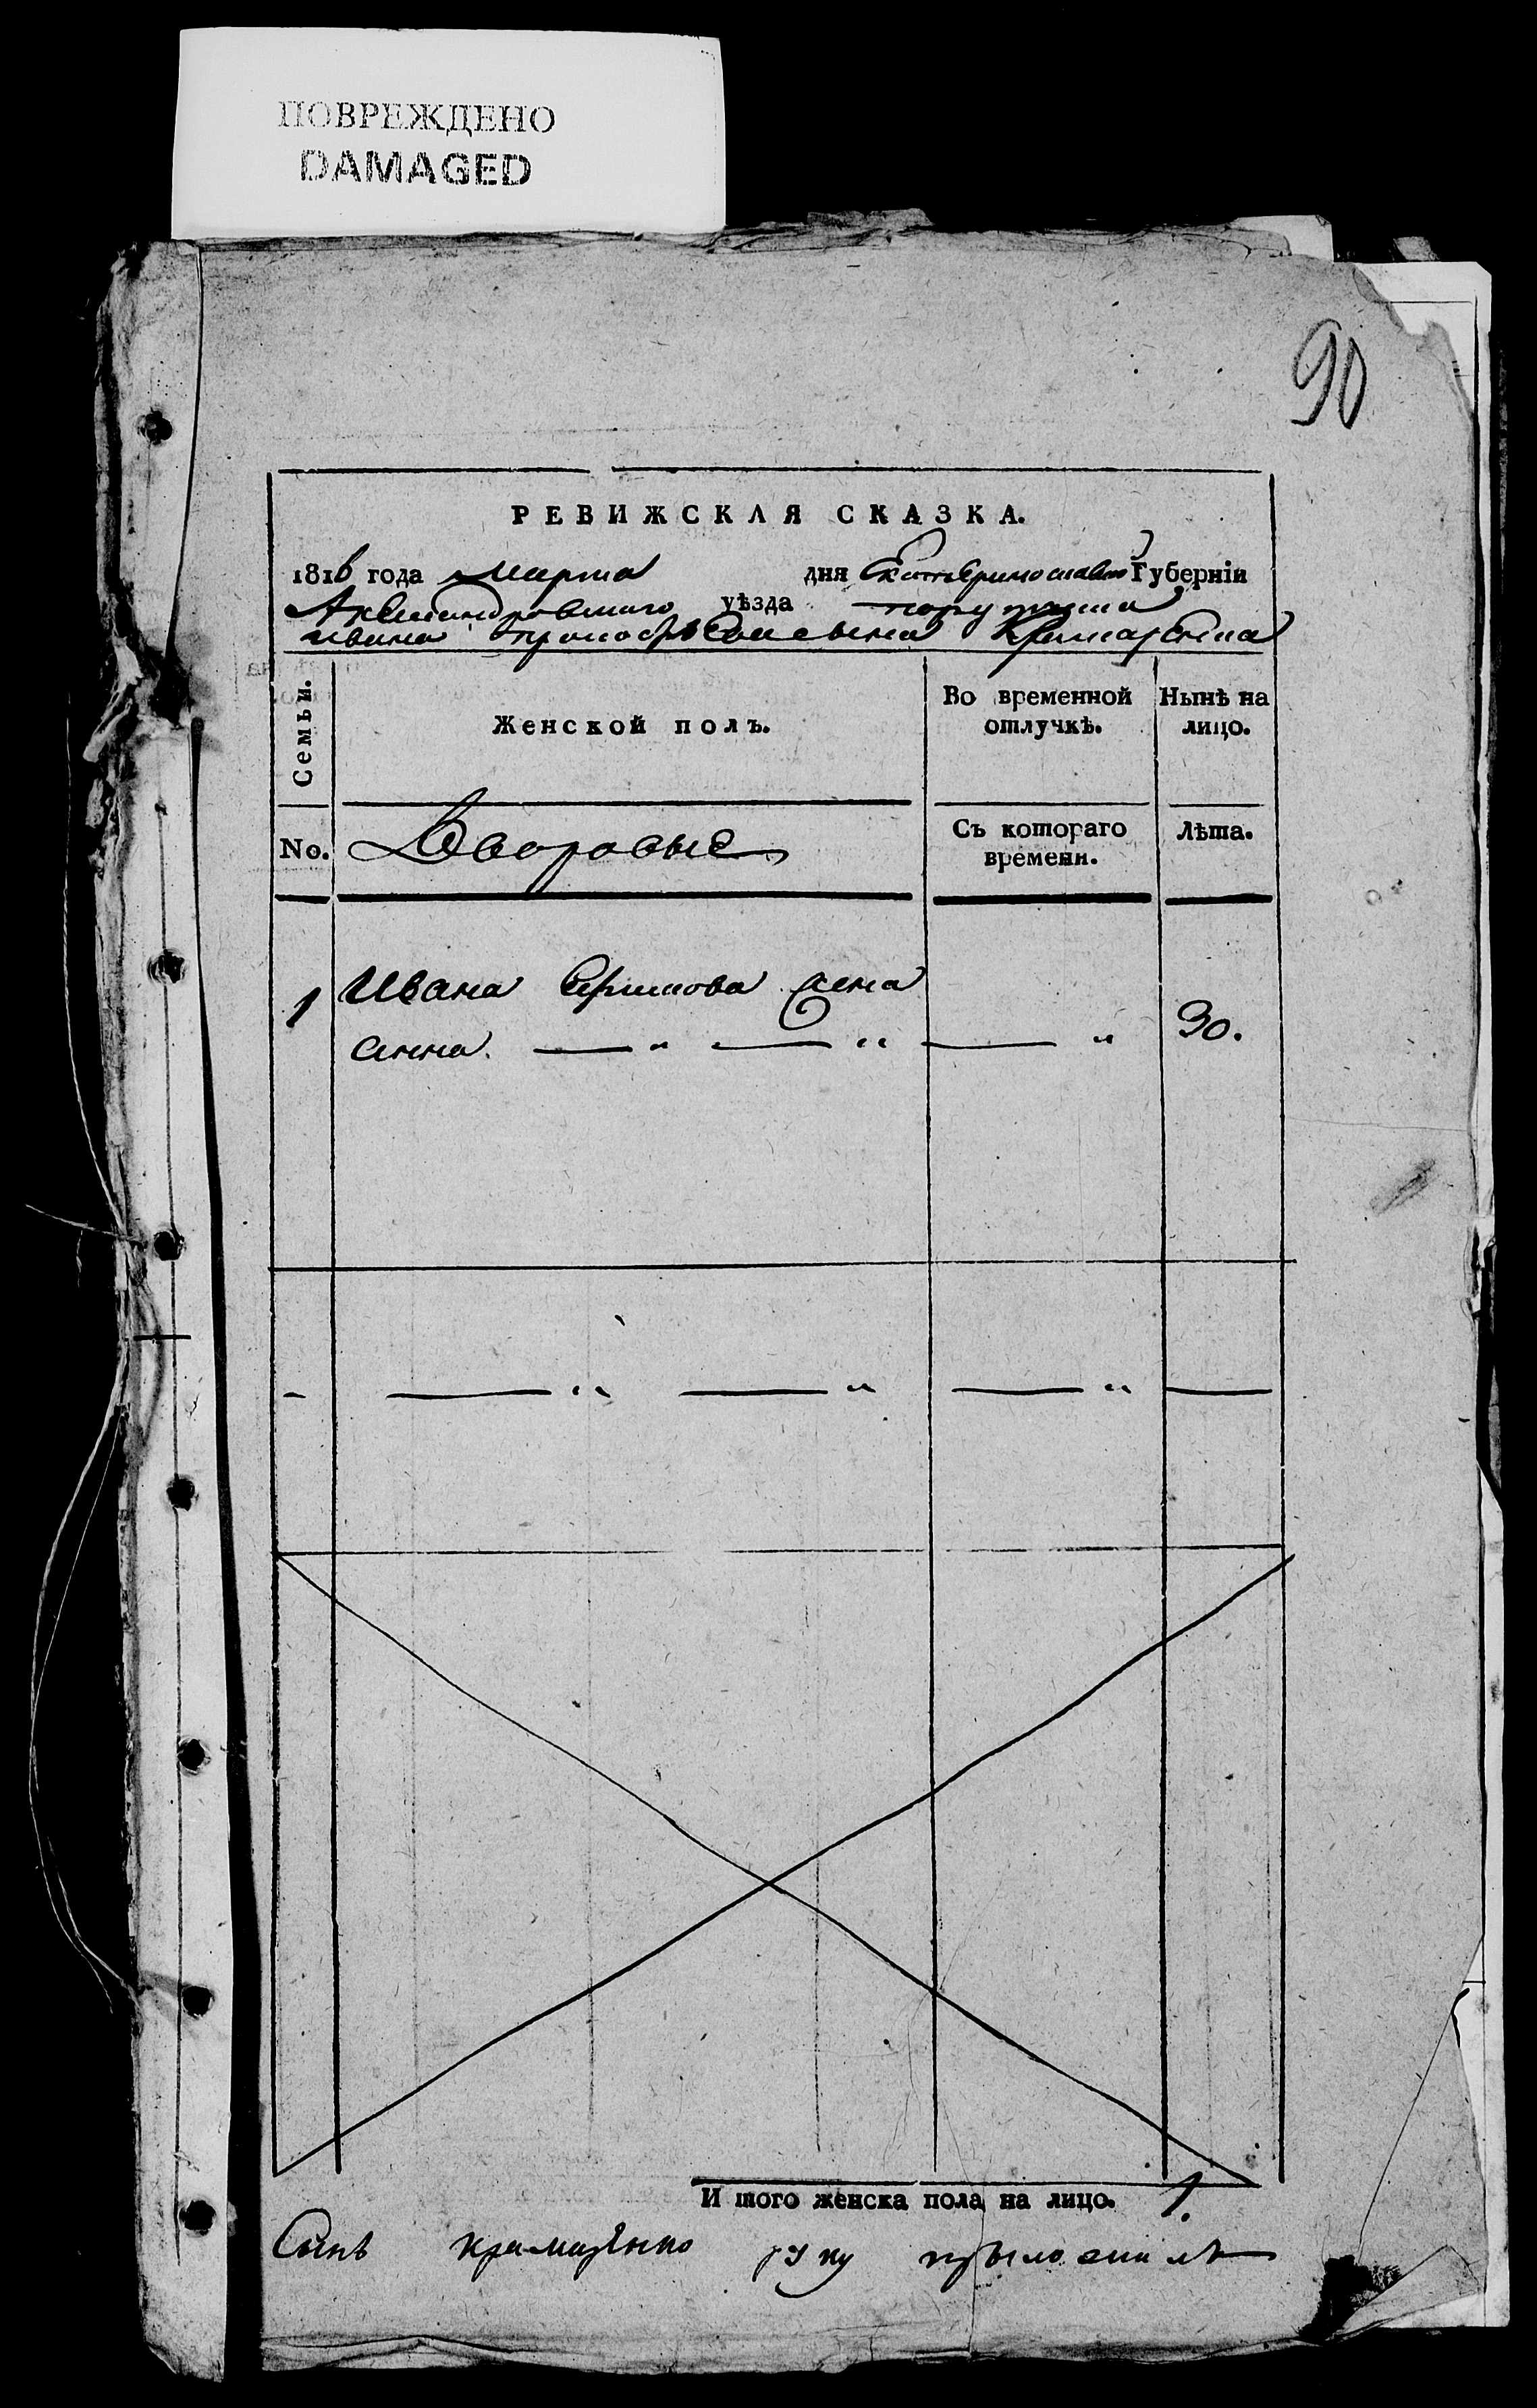 ПОВРЕЖДЕНО
DAMAGED
90
РЕВИЖСКАЯ СКАЗКА.
1816 года марта дня Екатеринославской Губерніи
Александровскаго уѣзда порутчика
Ивана сына Крамаренка
Семьи.
Женской полъ.
Во временной отлучкѣ.
Нынѣ на лицо.
No.
Дворовые
Съ котораго времени.
Лѣта.
1 Ивана Ефимова жена
анна. — " — " — " 30.
- — " — " — " —
И того женска пола на лицо. 1.
Сынъ крамаренко руку приложилъ